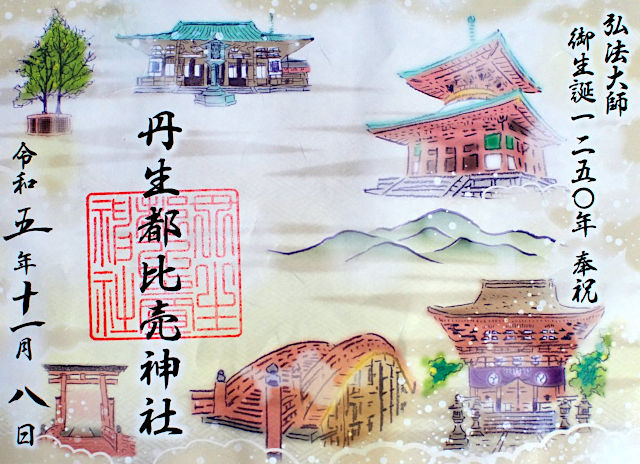 弘法大師
御生誕一二五〇年 奉祝
丹生都比売神社
令和五年十一月八日